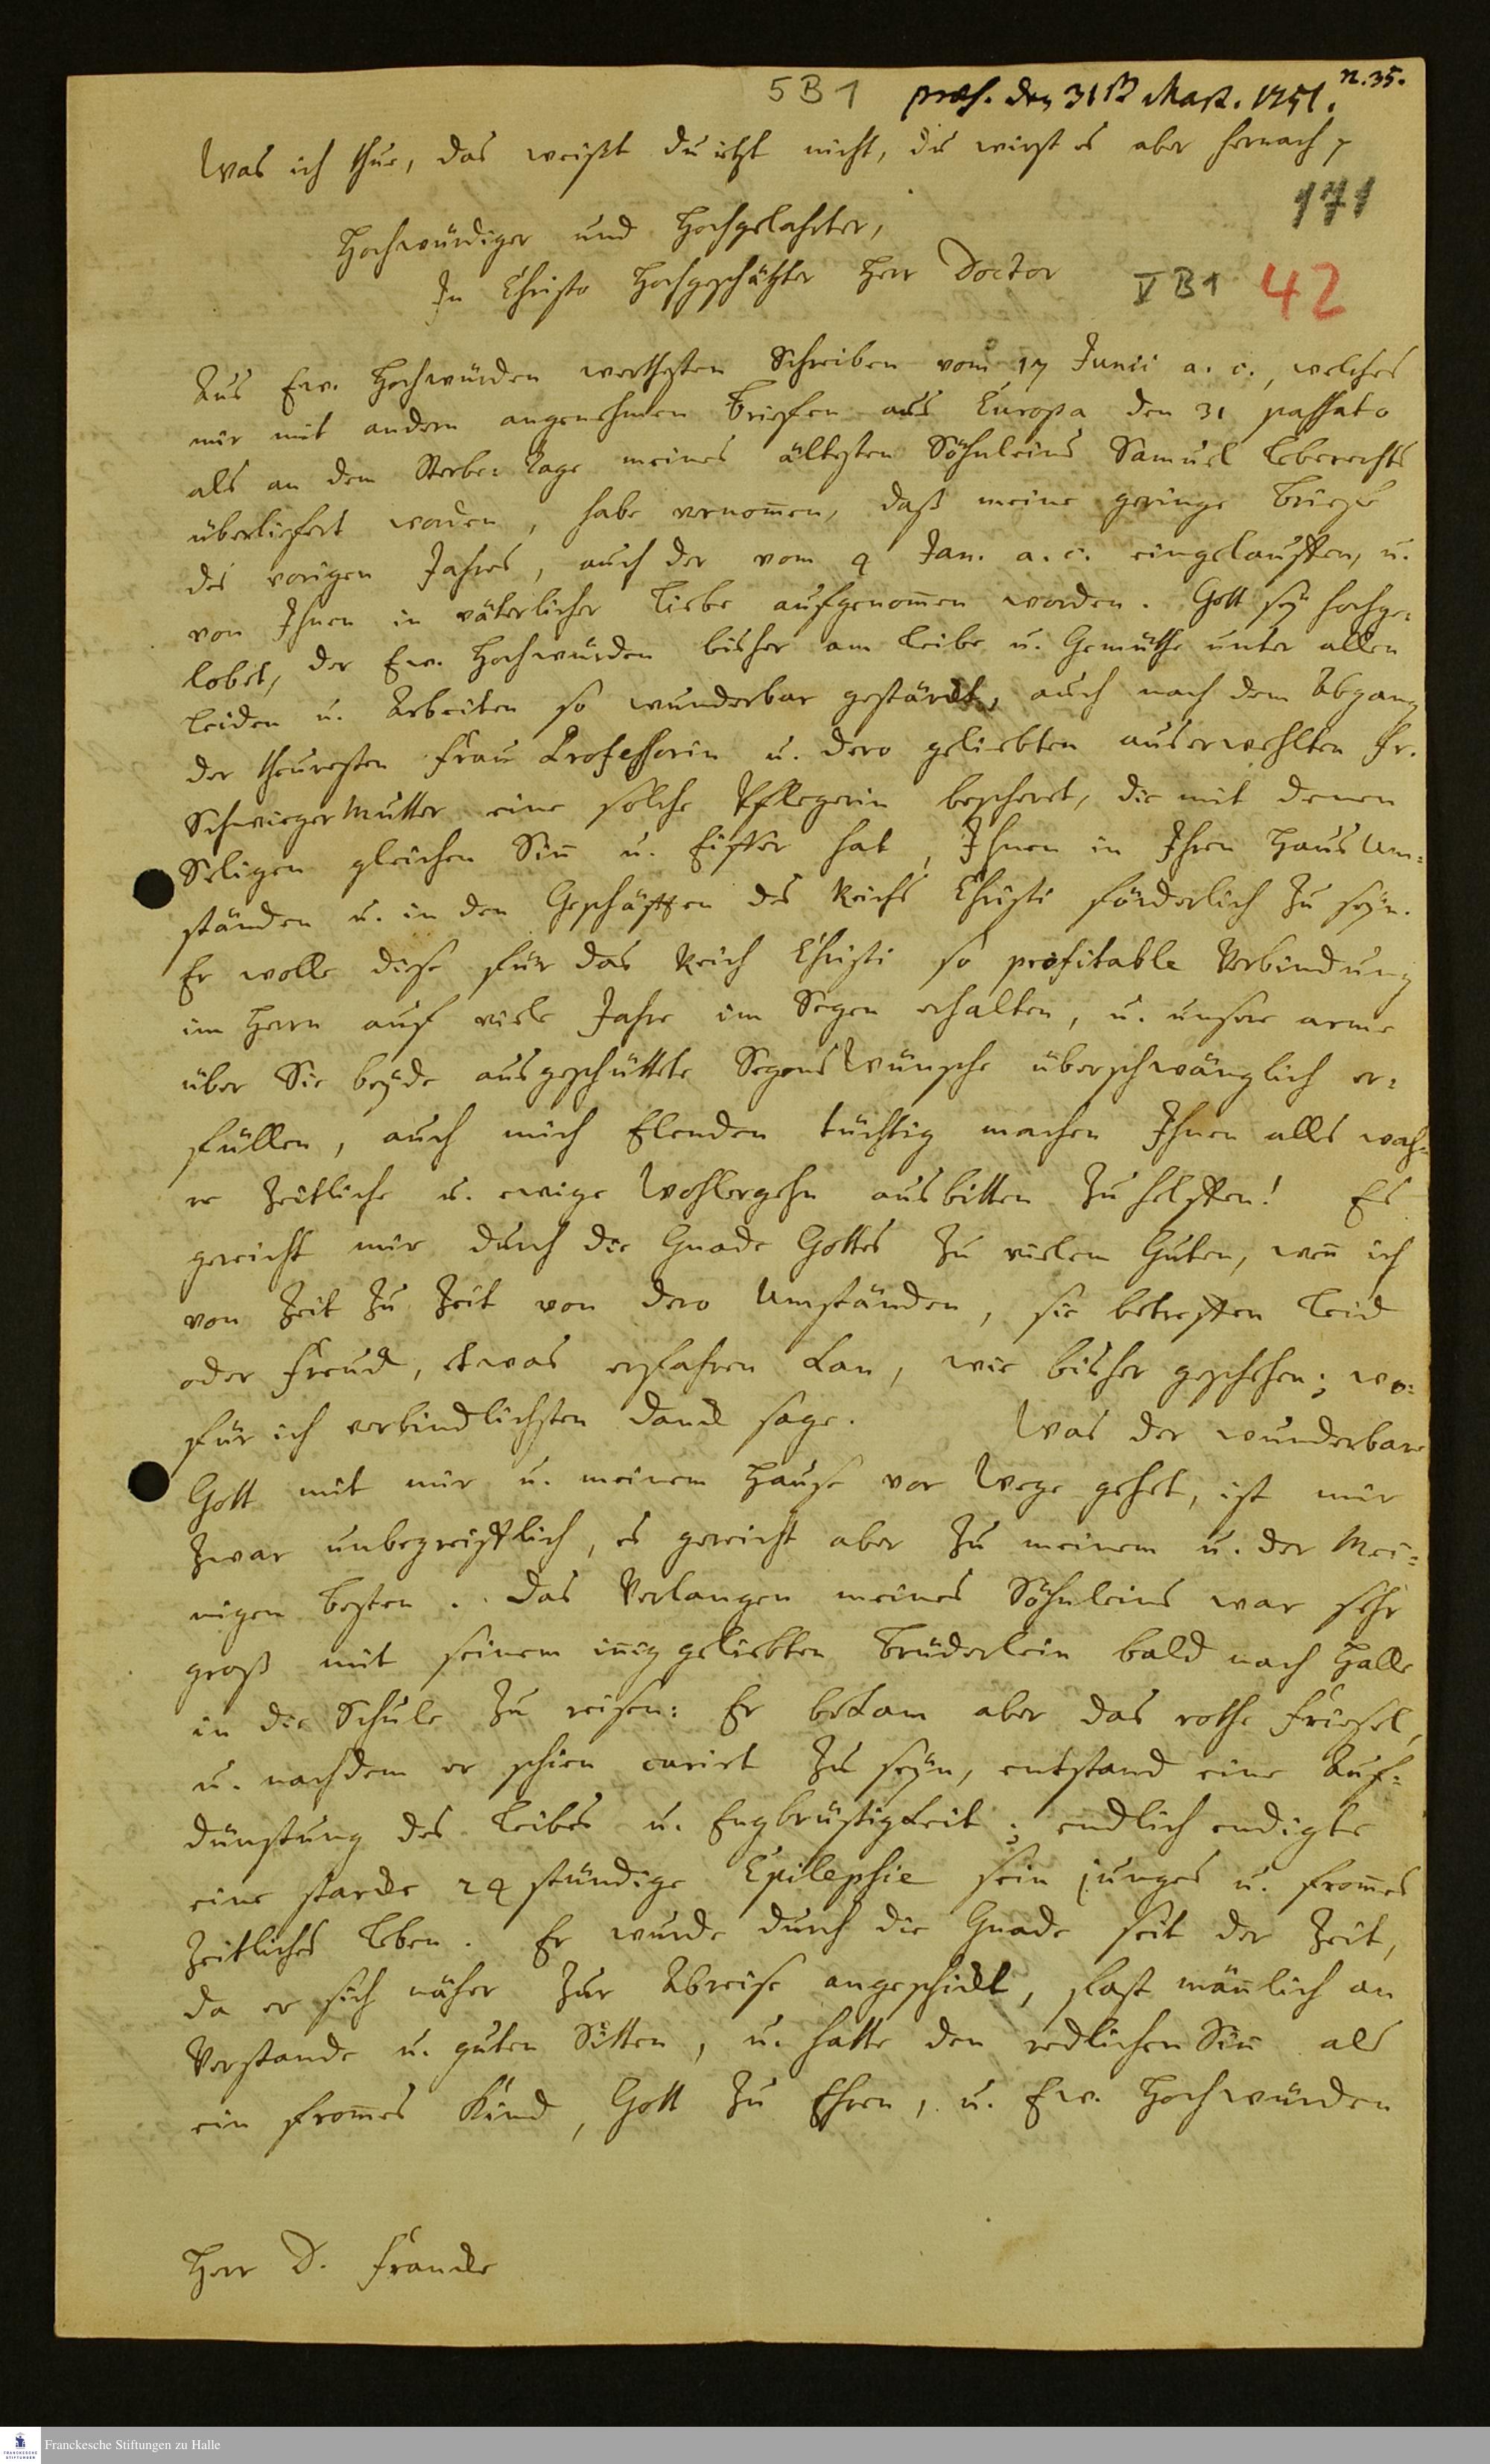 5 B 1 præs. den 31st Mart. 1751. n. 35.
Was ich thue, das weißt du ietzt nicht, du wirst es aber hernach p
171
Hochwürdiger und Hochgelahrter,
In Christo Hochgeschätzter Herr Doctor
V B 1 42
Aus Ew. Hochwürden werthesten Schreiben vom 17 Junii a. c., welches
mir mit andern angenehmen Briefen aus Europa den 31 passato
als an dem Sterbe-Tage meines ältesten Söhnleins Samuel Leberechts
überliefert worden, habe vernom̄en, daß meine geringe Briefe
des vorigen Jahres, auch der vom 9 Jan. a. c. eingelauffen, u.
von Ihnen in väterlicher Liebe aufgenom̄en worden. Gott sey hochge-
lobet, der Ew. Hochwürden bisher am Leibe u. Gemüthe unter allen
Leiden u. Arbeiten so wunderbar gestärckt, auch nach dem Abgang
der theuresten Frau Professorin u. dero geliebten auserwehlten Fr.
Schwieger Mutter eine solche Pflegerin bescheret, die mit denen
Seligen gleichen Sin̄ u. Eiffer hat, Ihnen in Ihren Haus Um-
ständen u. in den Geschäfften des Reichs Christi förderlich zu seyn.
Er wolle diese für das Reich Christi so profitable Verbindung
im Herrn auf viele Jahre im Segen erhalten, u. unsere arme
über Sie beyde ausgeschüttete Segens Wünsche überschwänglich er-
füllen, auch mich Elenden tüchtig machen Ihnen alles wah-
re zeitliche u. ewige Wohlergehn ausbitten zu helffen! Es
gereicht mir durch die Gnade Gottes zu vielem Guten, wen̄ ich
von Zeit zu Zeit von dero Umständen, sie betreffen Leid
oder Freud, etwas erfahren kan, wie bisher geschehen; wo-
für ich verbindlichsten Danck sage. Was der wunderbare
Gott mit mir u. meinem Hause vor Wege gehet, ist mir
zwar unbegreifflich, es gereicht aber zu meinem u. der Mei-
nigen Besten. Das Verlangen meines Söhnleins war sehr
groß mit seinem in̄ig geliebten Brüderlein bald nach Halle
in die Schule zu reisen: Er bekam aber das rothe Friesel,
u. nachdem er schien curirt zu seyn, entstand eine Auf-
dünstung des Leibes u. Engbrüstigkeit; endlich endigte
eine starcke 24 stündige Epilepsie sein junges u. from̄es
zeitliches Leben. Er wurde durch die Gnade seit der Zeit,
da er sich näher zur Abreise angeschickt, fast män̄lich an
Verstande u. guten Sitten, u. hatte den redlichen Sin̄ als
ein from̄es Kind, Gott zu Ehren, u. Ew. Hochwürden
Herr D. Francke
Franckesche Stiftungen zu Halle